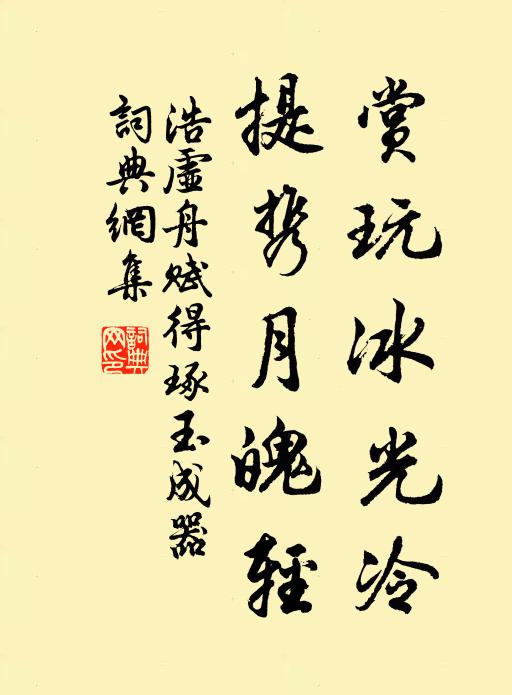 賞玩冰光冷
提携月魄輕
浩虛舟賦得琢玉成器
詞典網集
詞典网印